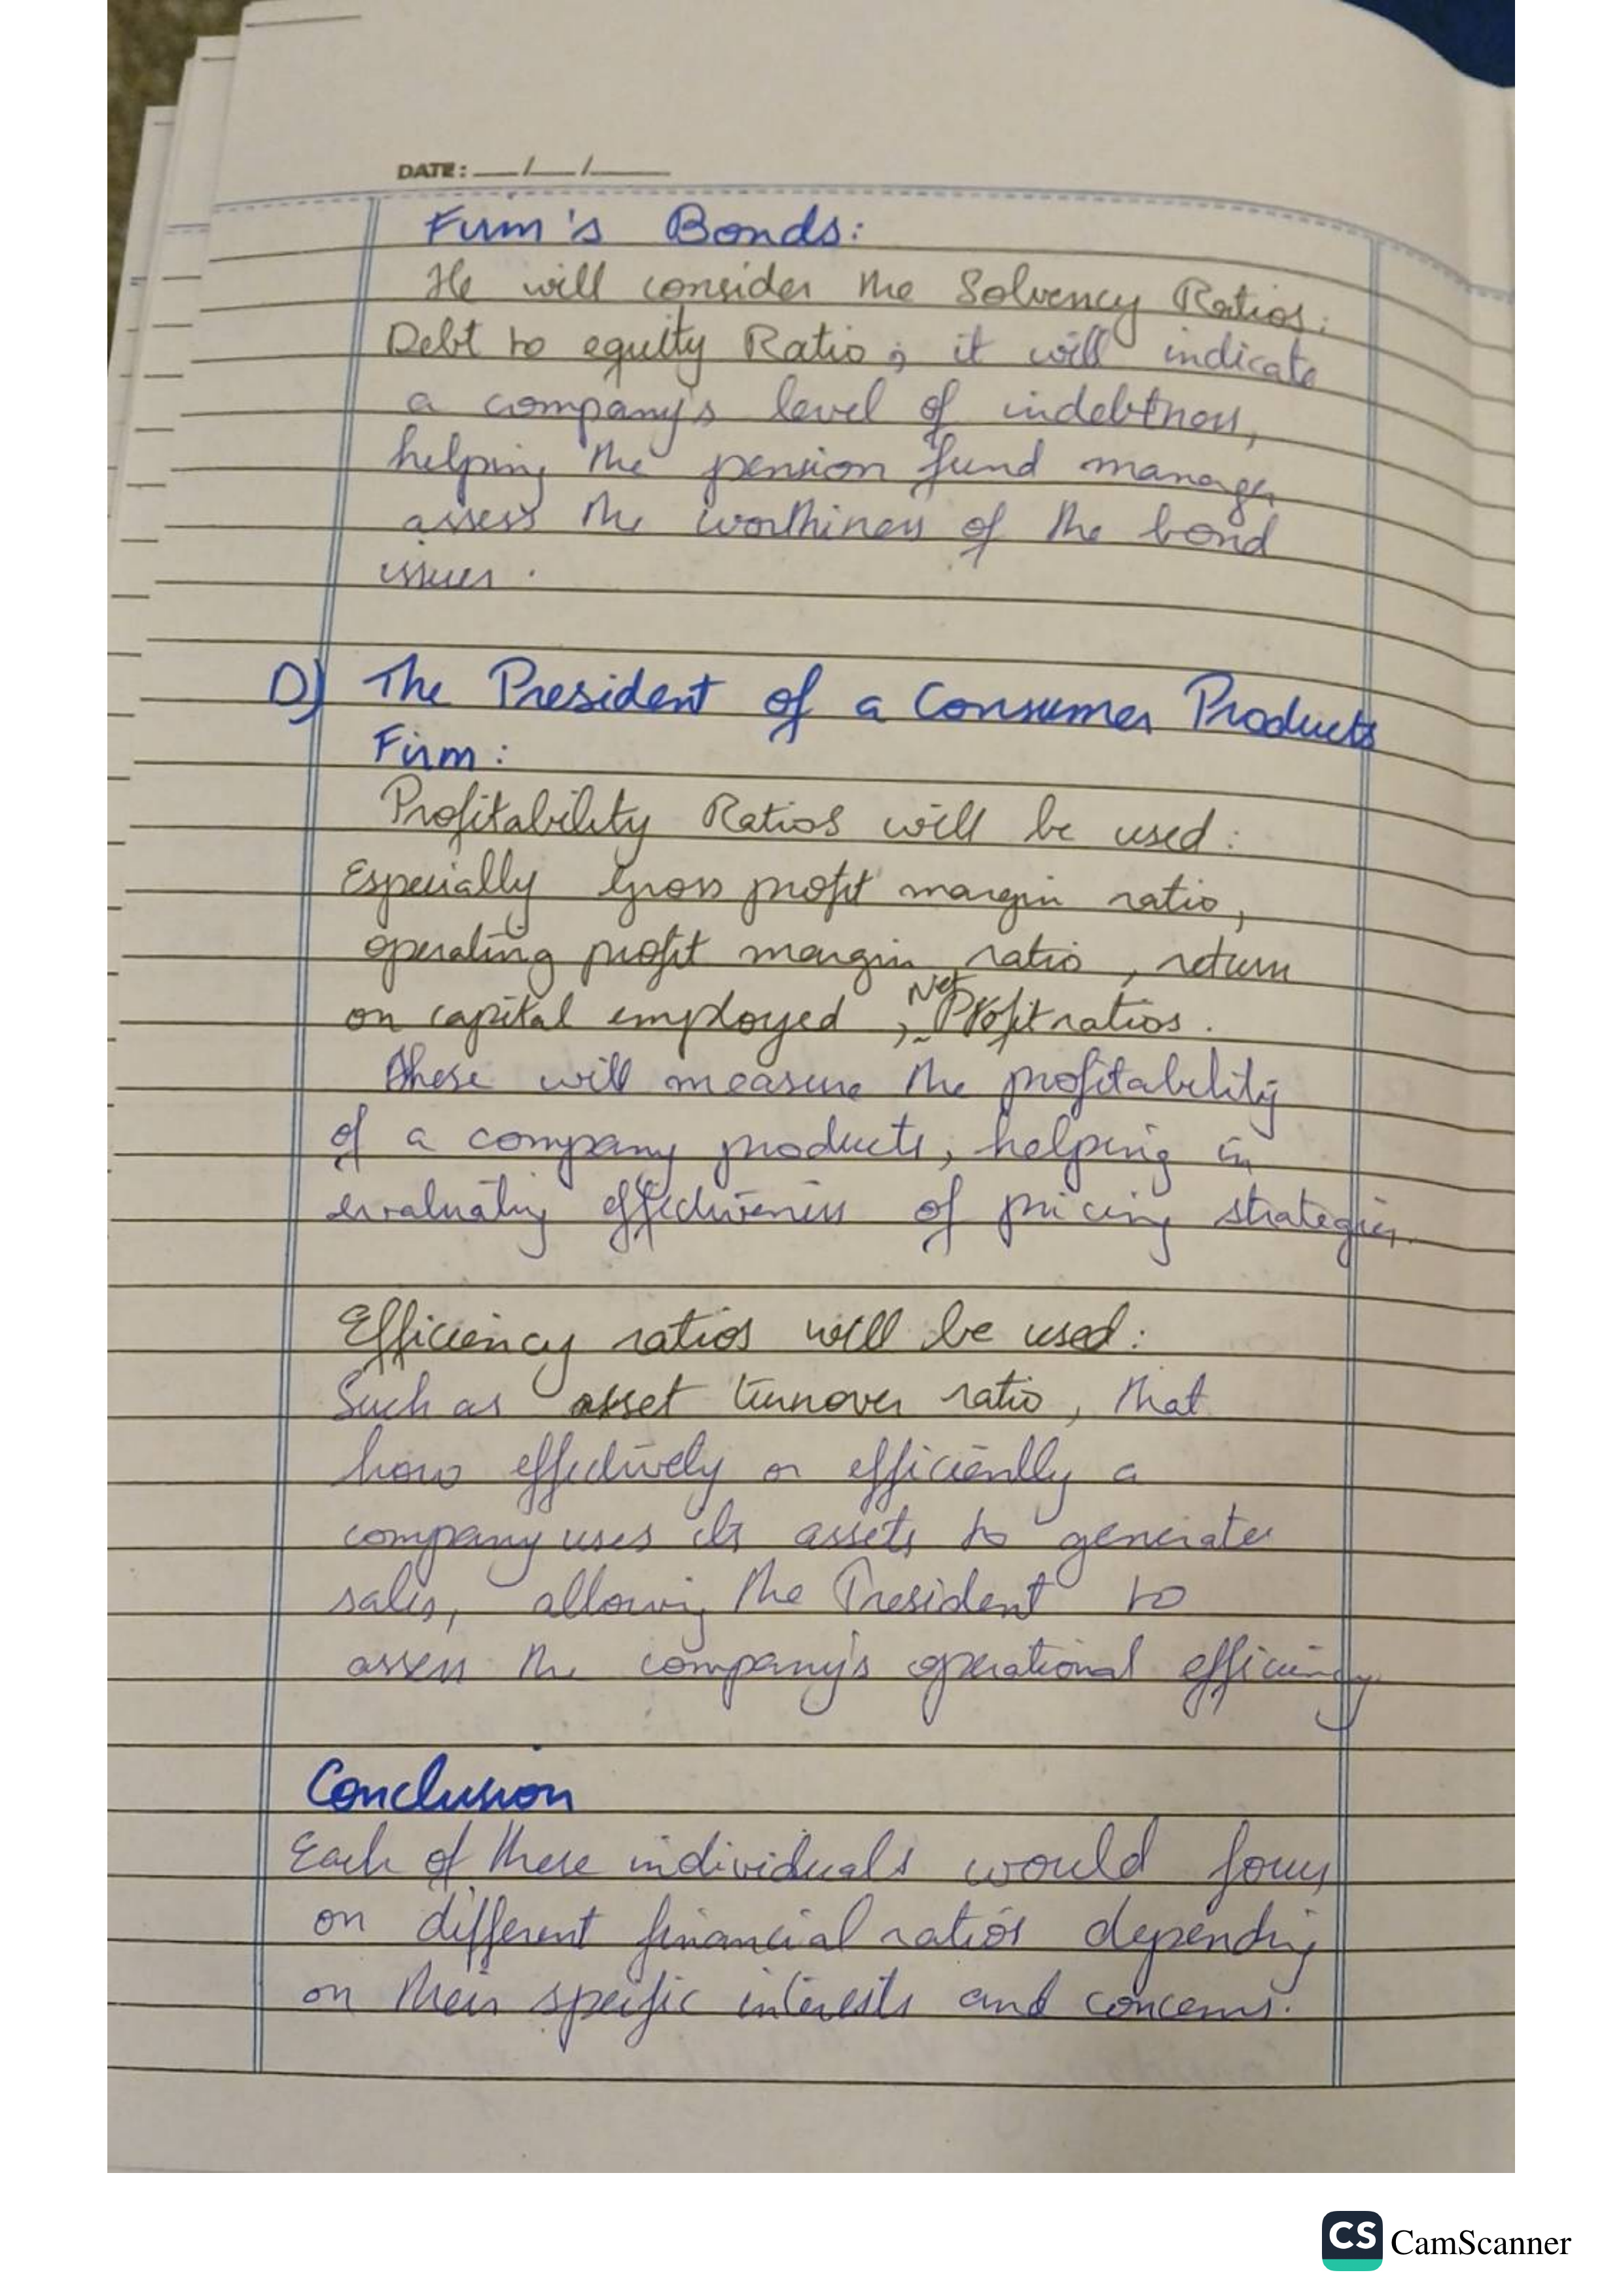 DATE: __/__/____
Firm's Bonds:
He will consider the Solvency Ratios:
Debt to equity Ratio; it will indicate
a company's level of indebtness,
helping the pension fund manager
assess the worthiness of the bond
issuer.
D) The President of a Consumer Products
Firm:
Profitability Ratios will be used:
Especially Gross profit margin ratio,
operating profit margin ratio, return
on capital employed, Net Profit ratios.
These will measure the profitability
of a company products, helping in
evaluating effectiveness of pricing strategies.
Efficiency ratios will be used:
Such as asset turnover ratio, that
how effectively or efficiently a
company uses its assets to generate
sales, allowing the President to
assess the company's operational efficiency.
Conclusion
Each of these individuals would focus
on different financial ratios depending
on their specific interests and concerns.
CS CamScanner